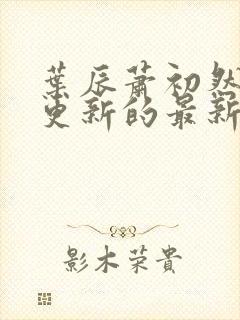 葉辰蕭初然
更新的最新
影木荣貴